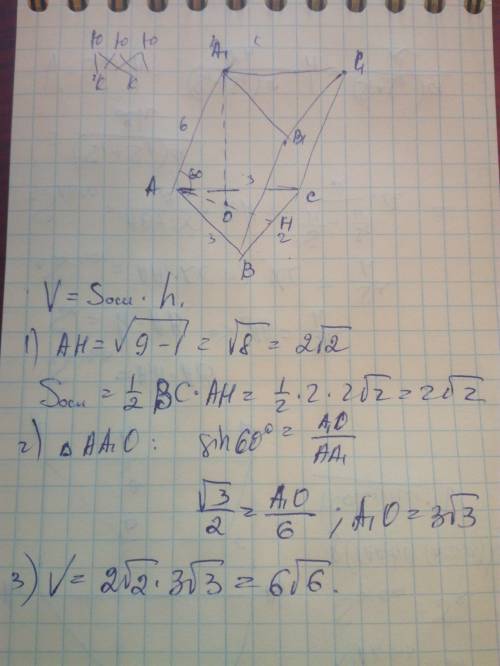 Ю Ю Ю
К К
A₁ C₁
6 B₁
A 60 3 C
O H
3 2
B
V = Sосн · h.
1) AH = √(9-1) = √8 = 2√2
Sосн = 1/2 BC · AH = 1/2 · 2 · 2√2 = 2√2
2) △ AA₁O : sin 60° = A₁O/AA₁
√3/2 = A₁O/6 ; A₁O = 3√3
3) V = 2√2 · 3√3 = 6√6.